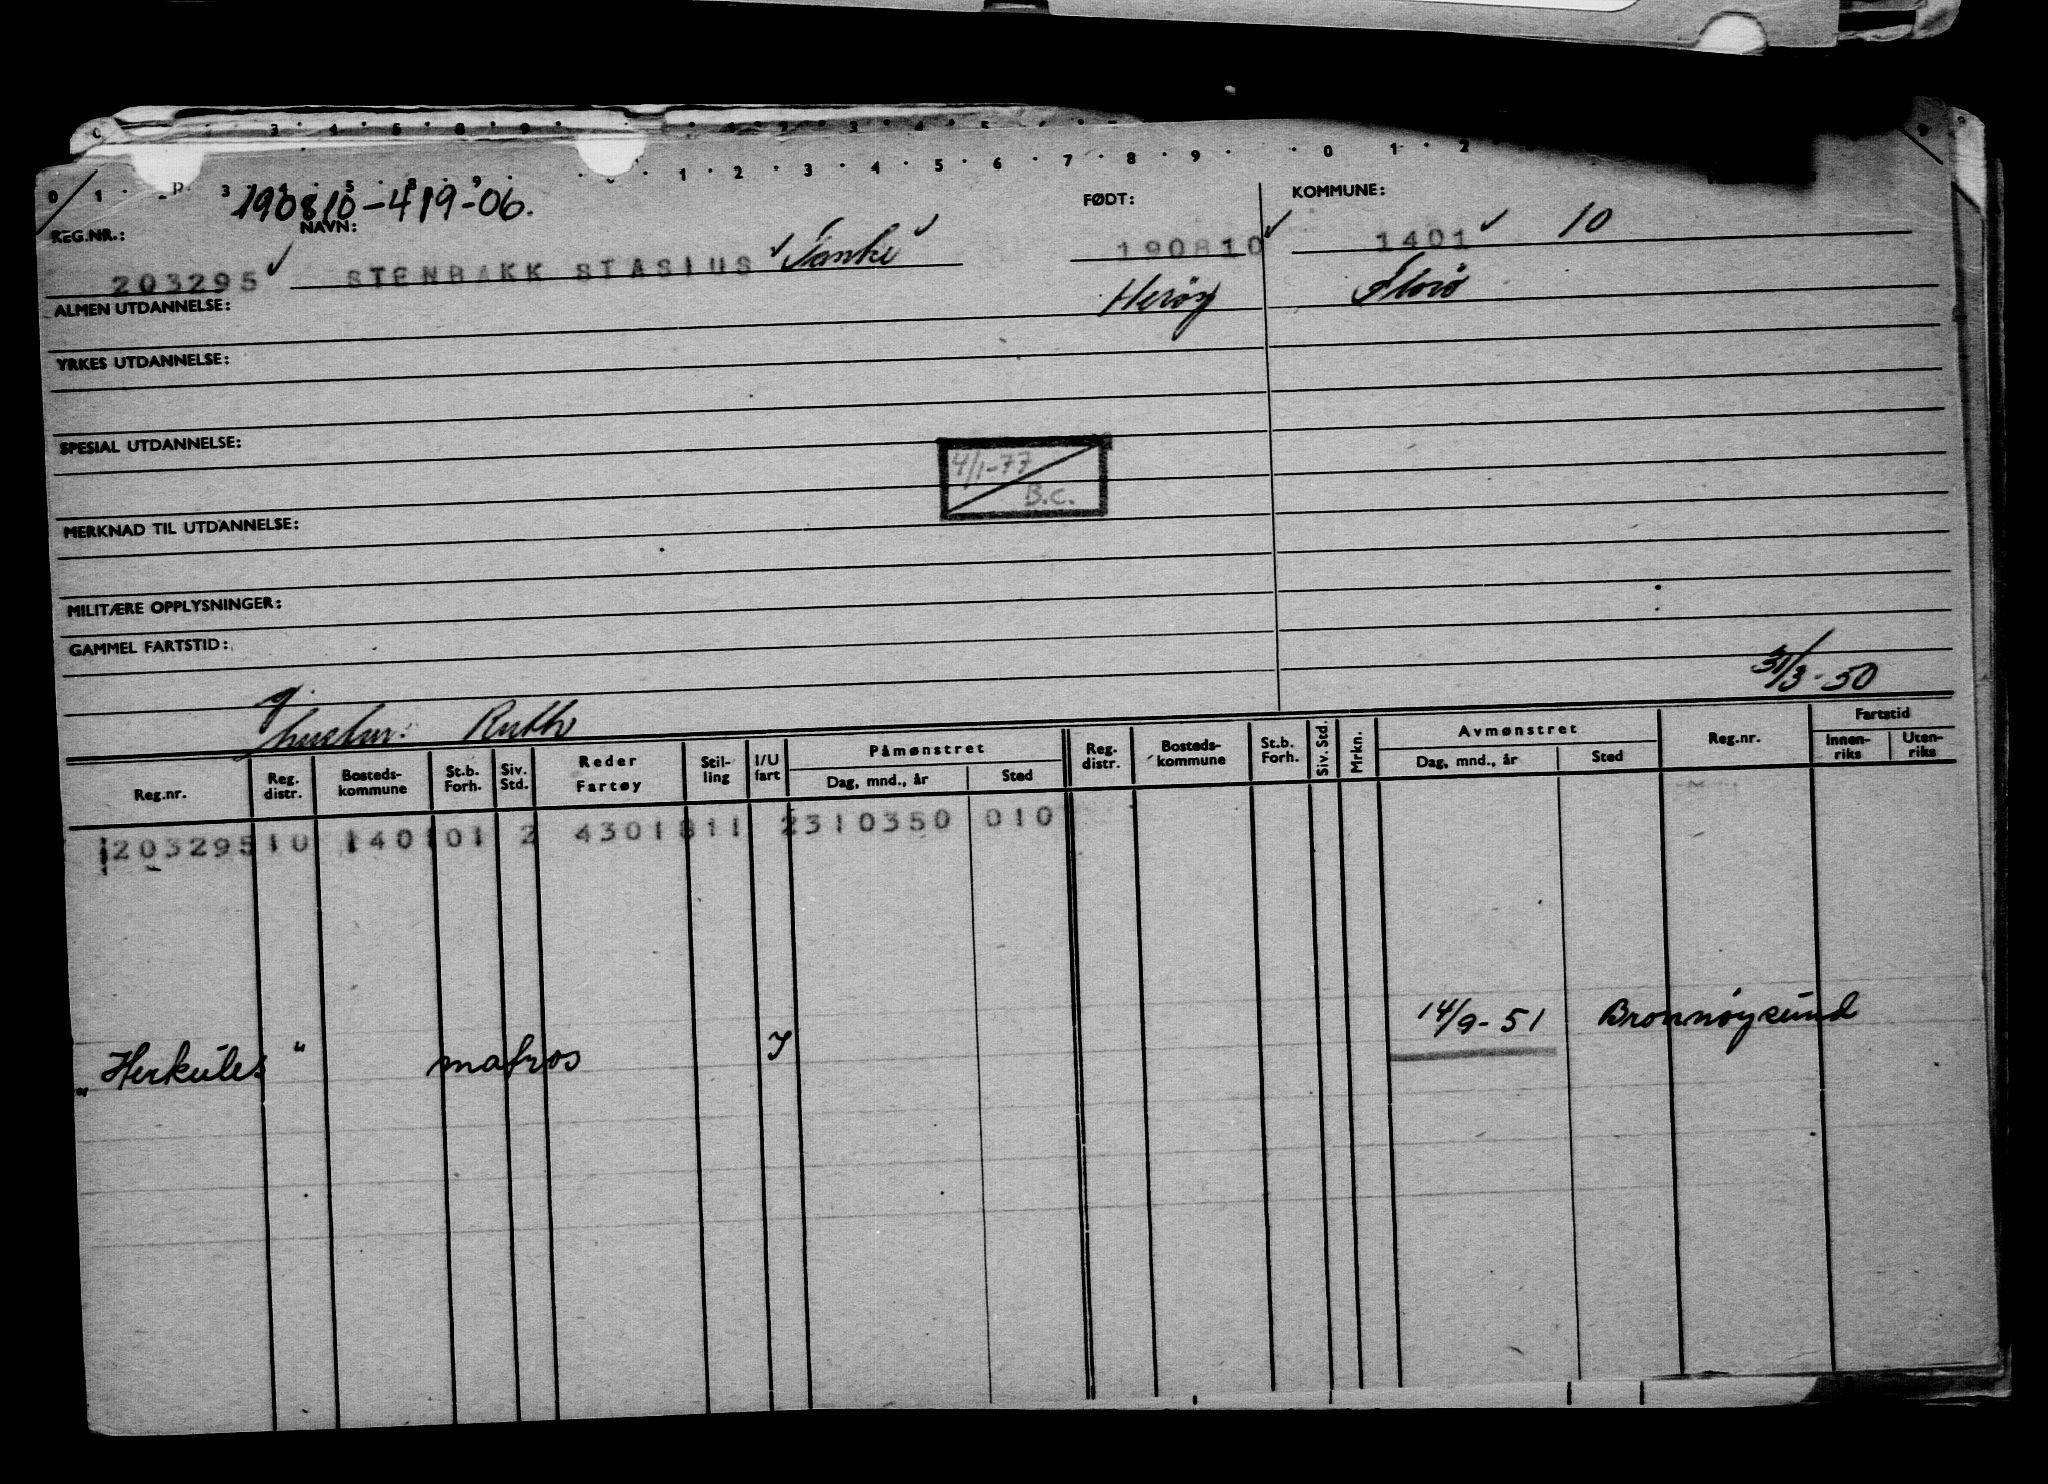 190810-419-06.
REG.NR.: NAVN: FØDT: KOMMUNE:
203295 STENBAKK STASIUS 190810 1401 10
ALMEN UTDANNELSE: Herøy Florø
YRKES UTDANNELSE:
SPESIAL UTDANNELSE:
4/1-77
B.C.
MERKNAD TIL UTDANNELSE:
MILITÆRE OPPLYSNINGER:
GAMMEL FARTSTID:
31/3-50
g.
hustru: Ruth
Reg.nr. Reg. distr. Bosteds-kommune St.b. Forh. Siv. Std. Reder Fartøy Stil-ling I/U fart Påmønstret Dag, mnd., år Sted Reg. distr. Bosteds-kommune St.b. Forh. Siv. Std. Mrkn. Avmønstret Dag, mnd., år Sted Reg.nr. Fartstid Innen-riks Uten-riks
203295 10 1401 01 2 4301811 2310350 010
14/9-51 Brønnøysund
„Herkules" matros I